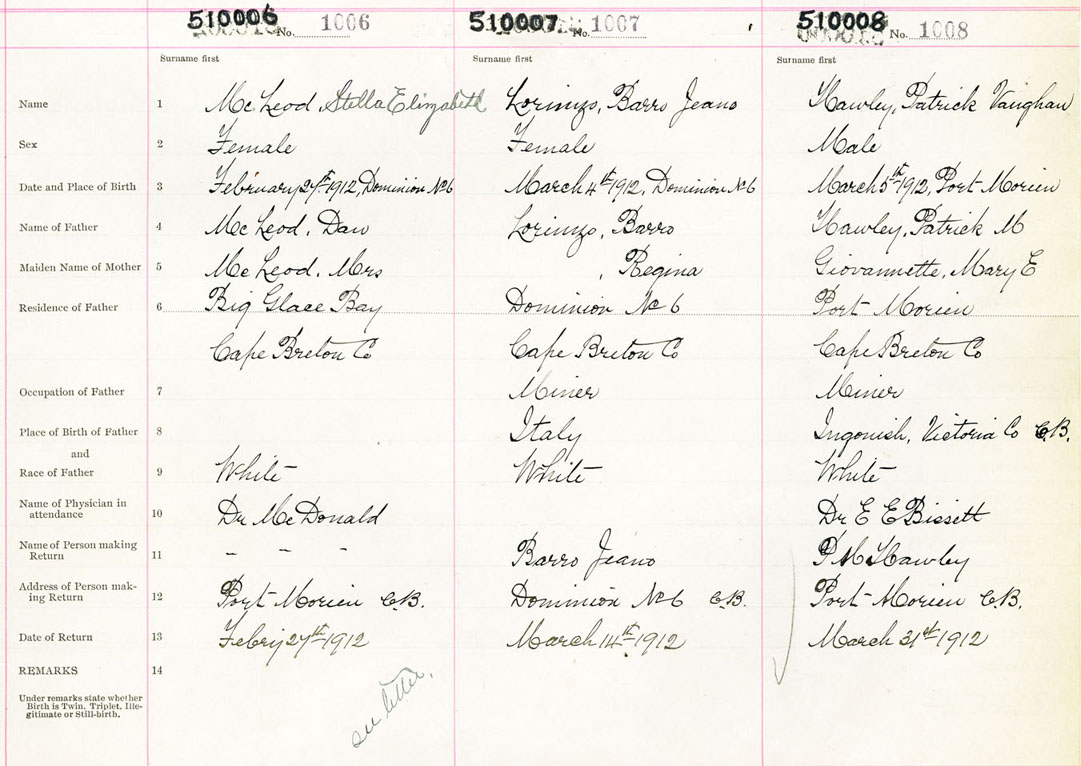 510006 No. 1006 510007 No. 1007 510008 No. 1008
Surname first Surname first Surname first
Name 1 McLeod, Stella Elizabeth Lorimzo, Barro Jeano Hawley, Patrick Vaughan
Sex 2 Female Female Male
Date and Place of Birth 3 February 27th 1912, Dominion No 6 March 4th 1912, Dominion No 6 March 5th 1912, Port Morien
Name of Father 4 McLeod, Dan Lorimzo, Barro Hawley, Patrick M
Maiden Name of Mother 5 McLeod, Mrs , Regina Giovannette, Mary E
Residence of Father 6 Big Glace Bay Dominion No 6 Port Morien
Cape Breton Co Cape Breton Co Cape Breton Co
Occupation of Father 7 Miner Miner
Place of Birth of Father 8 Italy Ingonish, Victoria Co C.B.
and
Race of Father 9 White White White
Name of Physician in
attendance 10 Dr McDonald Dr E E Bissett
Name of Person making
Return 11 - - - Barro Jeano P M Hawley
Address of Person mak-
ing Return 12 Port Morien C.B. Dominion No 6 C.B. Port Morien C.B.
Date of Return 13 Febry 27th 1912 March 14th 1912 March 31st 1912
REMARKS 14
Under remarks state whether
Birth is Twin, Triplet, Ille-
gitimate or Still-birth.
see letter.